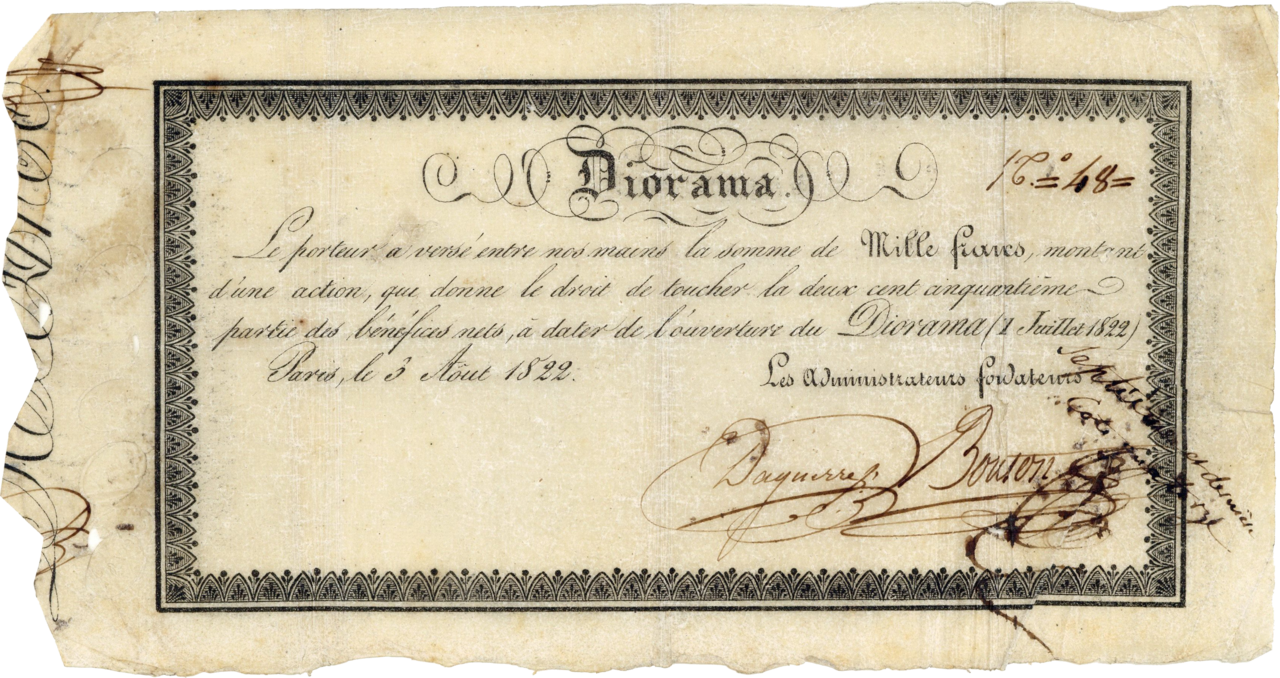 Diorama.
N.º 48
Le porteur a versé entre nos mains la somme de Mille francs, montant
d'une action, qui donne le droit de toucher la deux cent cinquantième
partie des bénéfices nets, à dater de l'ouverture du Diorama (1 Juillet 1822)
Paris, le 3 Août 1822.
Les Administrateurs fondateurs
Daguerre Bouton
et dernier